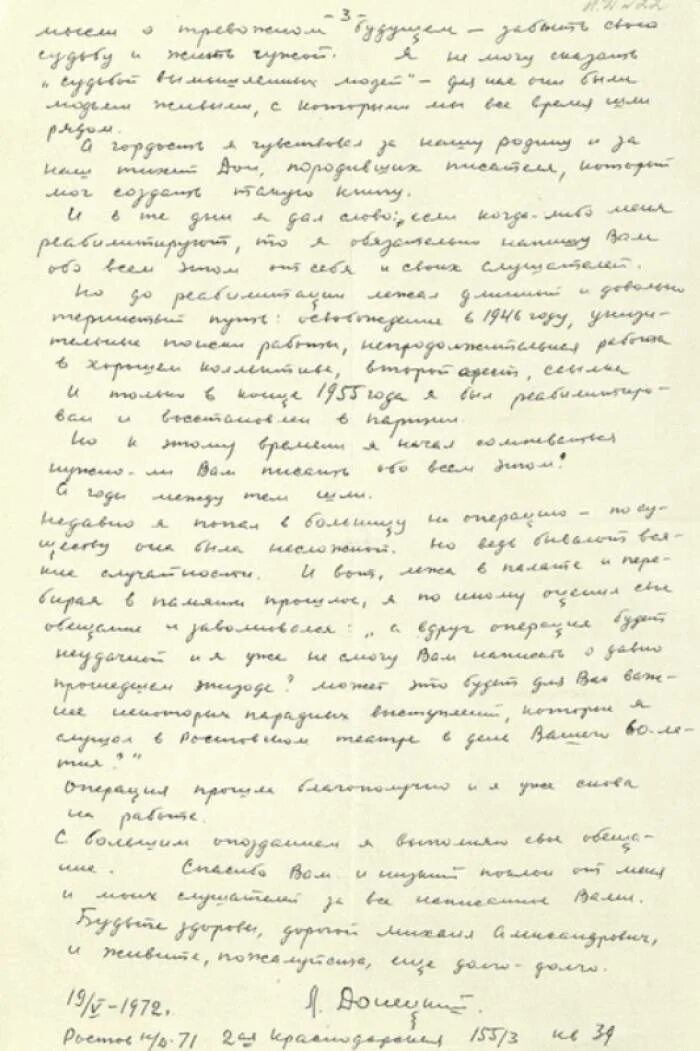 - 3 -
мысли о тревожном будущем — забыть свою
судьбу и жить чужой. Я не могу сказать
"судьбой вымышленных людей" — для нас они были
людьми живыми, с которыми мы все время шли
рядом.
А гордость я чувствовал за нашу родину и за
наш тихий Дон, породивших писателя, который
мог создать такую книгу.
И в те дни я дал слово: если когда-либо меня
реабилитируют, то я обязательно напишу Вам
обо всем этом от себя и своих слушателей.
Но до реабилитации лежал длинный и довольно
тернистый путь: освобождение в 1946 году, унизи-
тельные поиски работы, непродолжительная работа
в хорошем коллективе, второй арест, ссылка
И только в конце 1955 года я был реабилитиро-
ван и восстановлен в партии.
Но к этому времени я начал сомневаться
нужно-ли Вам писать обо всем этом?
А годы между тем шли.
Недавно я попал в больницу на операцию — по су-
ществу она была несложной. Но ведь бывают вся-
кие случайности. И вот, лежа в палате и пере-
бирая в памяти прошлое, я по иному оценил свое
обещание и заволновался: "а вдруг операция будет
неудачной и я уже не смогу Вам написать о давно
прошедшем эпизоде? Может это будет для Вас важ-
нее некоторых парадных выступлений, которые я
слушал в Ростовском театре в день Вашего 60-ле-
тия?"
Операция прошла благополучно и я уже снова
на работе.
С большим опозданием я выполняю свое обеща-
ние. Спасибо Вам и низкий поклон от меня
и моих слушателей за все написанное Вами.
Будьте здоровы, дорогой Михаил Александрович,
и живите, пожалуйста, еще долго-долго.
19/V-1972. Л. Донецкий.
Ростов н/д-71 2ая Краснодарская 155/3 кв 39